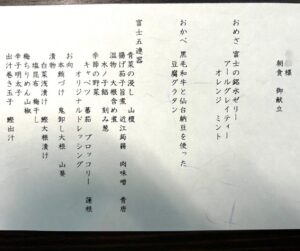 様
朝食 御献立
おめざ 富士の銘水ゼリー
アールグレイティー
オレンジ ミント
おかべ 黒毛和牛と仙台納豆を使った
豆腐グラタン
富士五連器
青菜の浸し 山榎
揚げ茄子旨煮 近江蒟蒻 肉味噌 青唐
温物 大根含め煮
水ノ子餡 刻み葱
季節の野菜
キャベツ 蕃茄 ブロッコリー 蓮根
オリジナルドレッシング
お向
本鮪づけ 鬼卸し大根 山葵
漬物
白菜浅漬け 鰹大根漬け
塩昆布 梅干し
梅ちりめん山椒
辛子明太子
出汁巻き玉子 鰹出汁